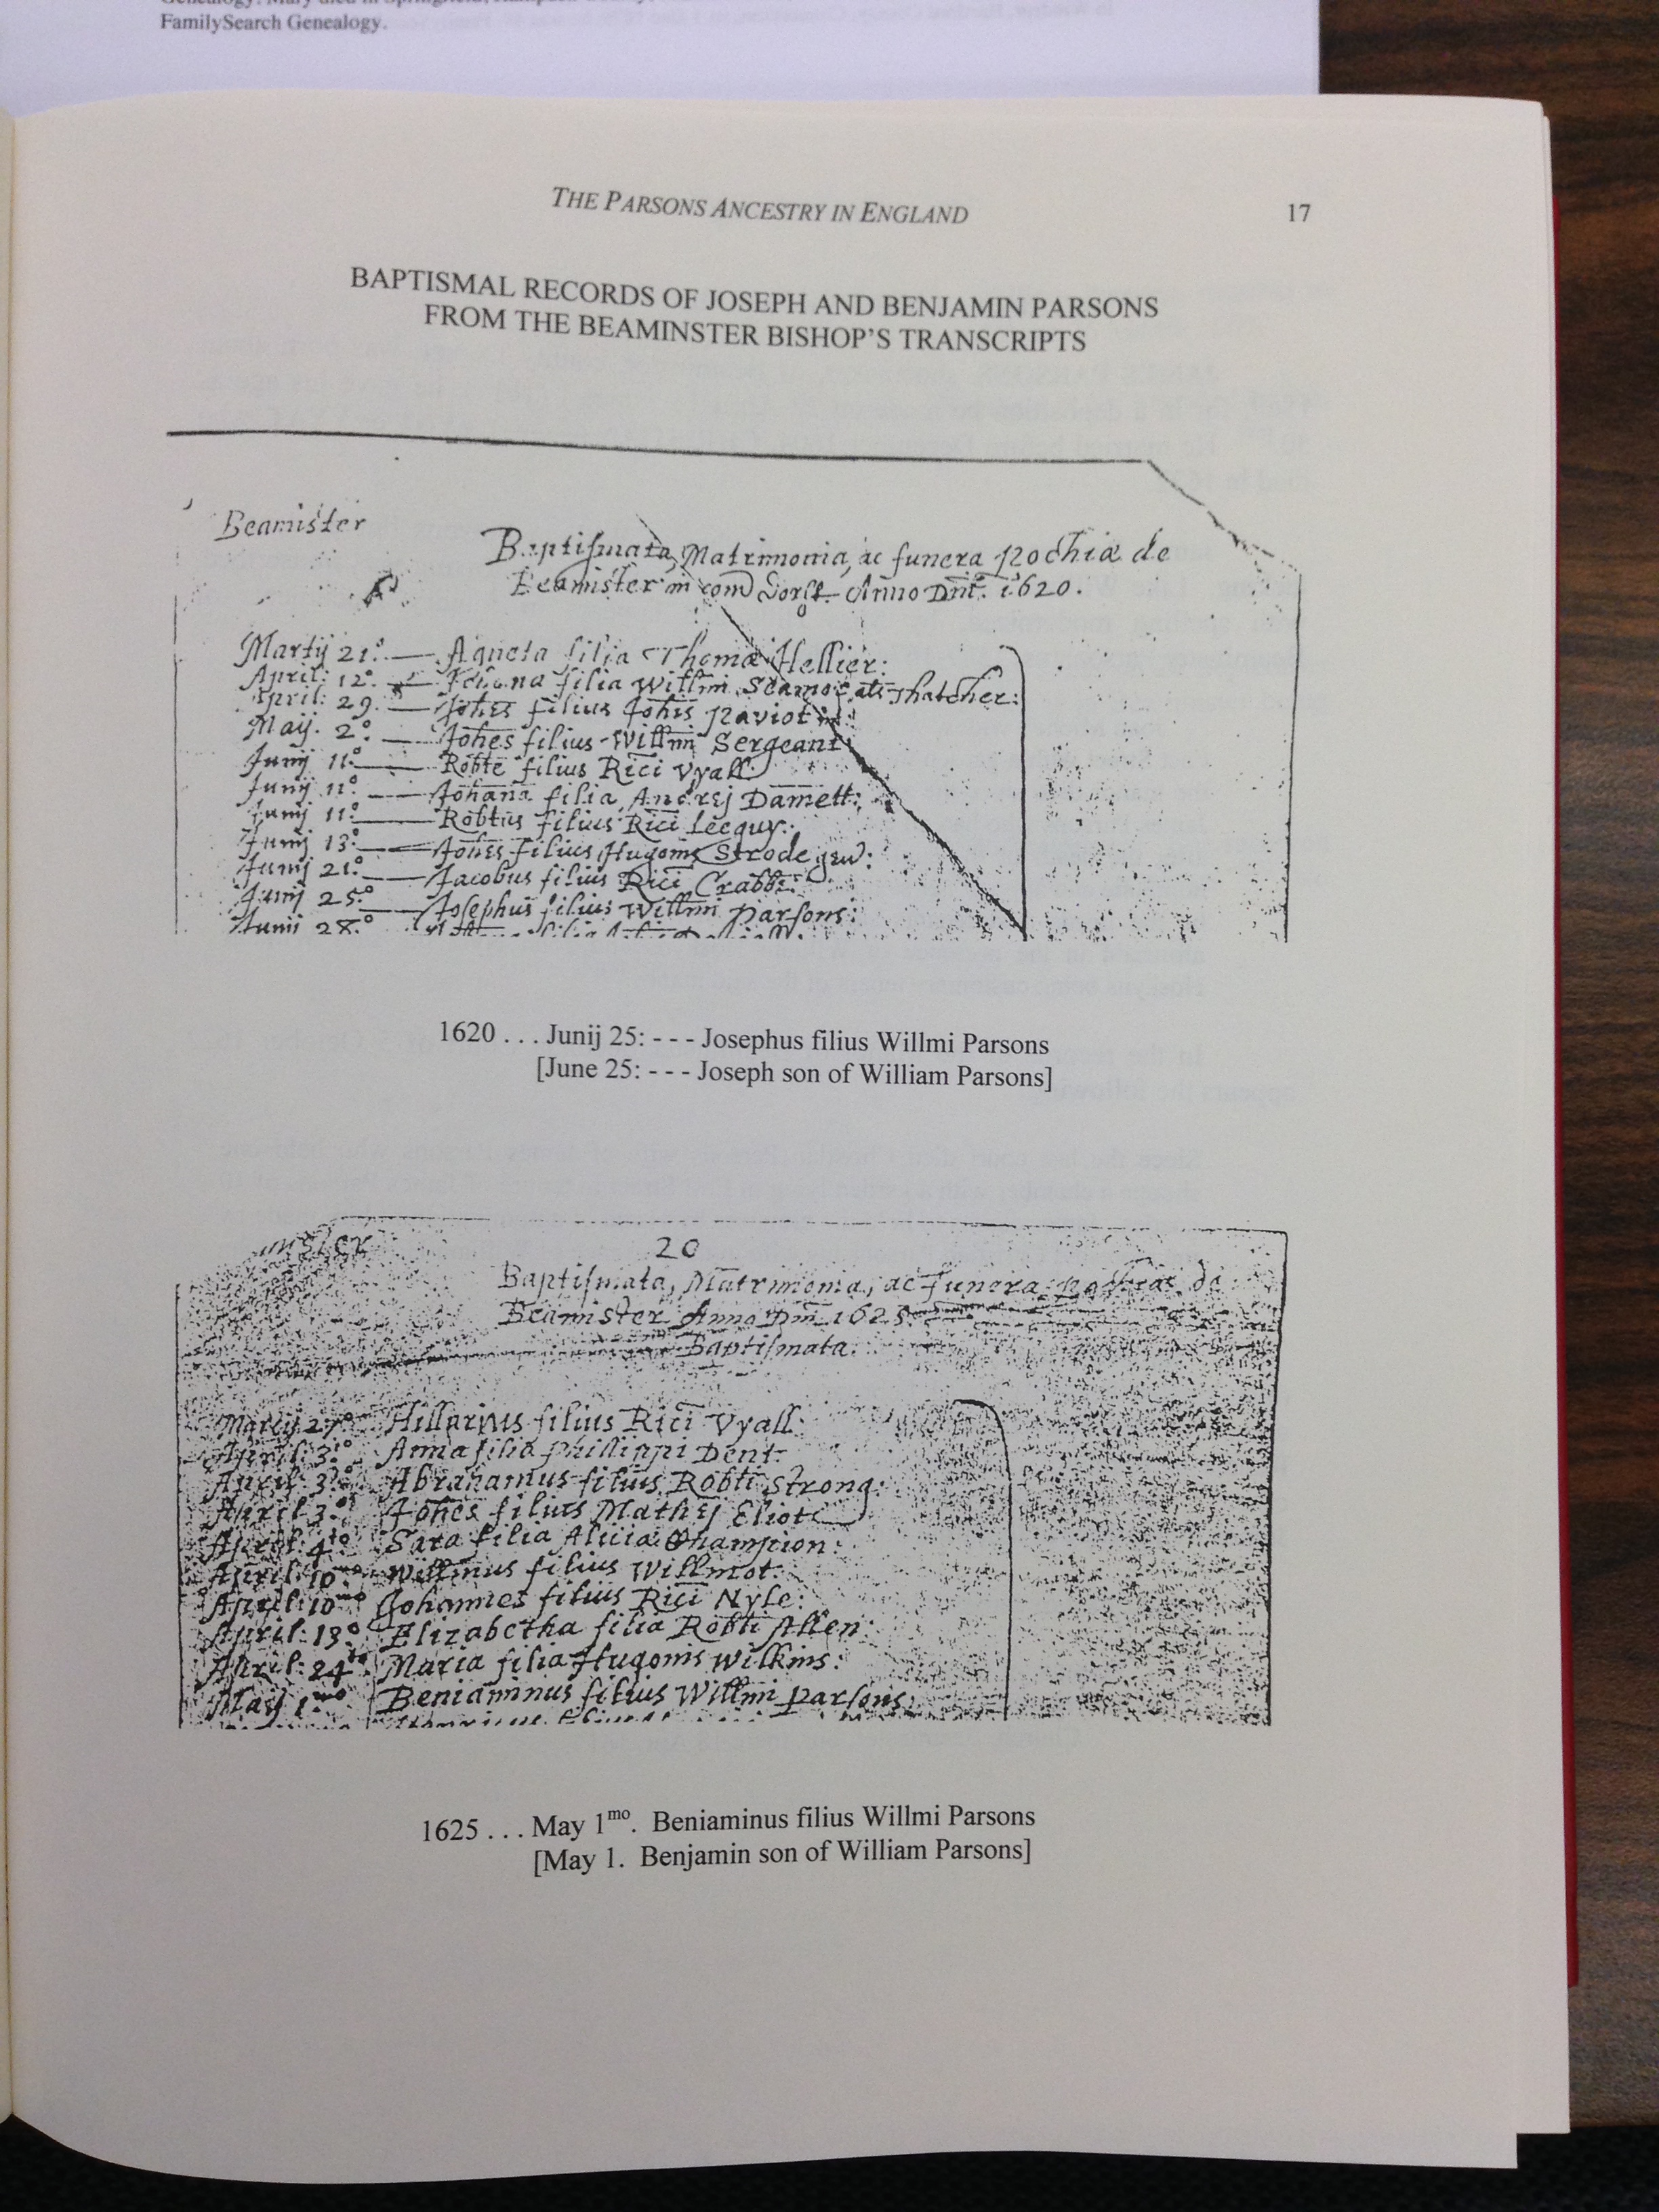 FamilySearch Genealogy.
THE PARSONS ANCESTRY IN ENGLAND
17
BAPTISMAL RECORDS OF JOSEPH AND BENJAMIN PARSONS
FROM THE BEAMINSTER BISHOP'S TRANSCRIPTS
Beamister
Baptismata, Matrimonia, ac funera pochiæ de
Beamister in com Dorst. Anno Dni. 1620.
Martij 21° — Agneta filia Thomæ Hellier:
April: 12° — filia Willmi als Thatcher:
April: 29. — Johes filius Johis
Maij. 2° — Johes filius Willmi Sergeant
Junij 11° — Robte filius Rici Vyall
Junij 11° — Johana filia Andrej Damett:
Junij 11° — Robtus filius Rici
Junij 13° — Johes filius Hugonis Strode gen:
Junij 21° — Jacobus filius Rici Crabb:
Junij 25° — Josephus filius Willmi Parsons:
Junij 28° filia
1620 . . . Junij 25: - - - Josephus filius Willmi Parsons
[June 25: - - - Joseph son of William Parsons]
20
Baptismata, Matrimonia, ac Funera pochiæ de
Beamister Anno Dni 1625
Baptismata:
Martij 27° Hillarius filius Rici Vyall:
April: 3° Anna filia Phillippi Dent:
April: 3° Abrahamus filius Robti Strong:
April 3° Johes filius Mathej Eliot
April: 4to Sara filia Aliciæ Champion:
April: 10mo Willmus filius Willmot:
April: 10mo Johannes filius Rici Nyle:
April: 13° Elizabetha filia Robti Allen:
April: 24to Maria filia Hugonis Wilkins:
Maij 1mo Beniaminus filius Willmi Parsons:
1625 . . . May 1mo. Beniaminus filius Willmi Parsons
[May 1. Benjamin son of William Parsons]